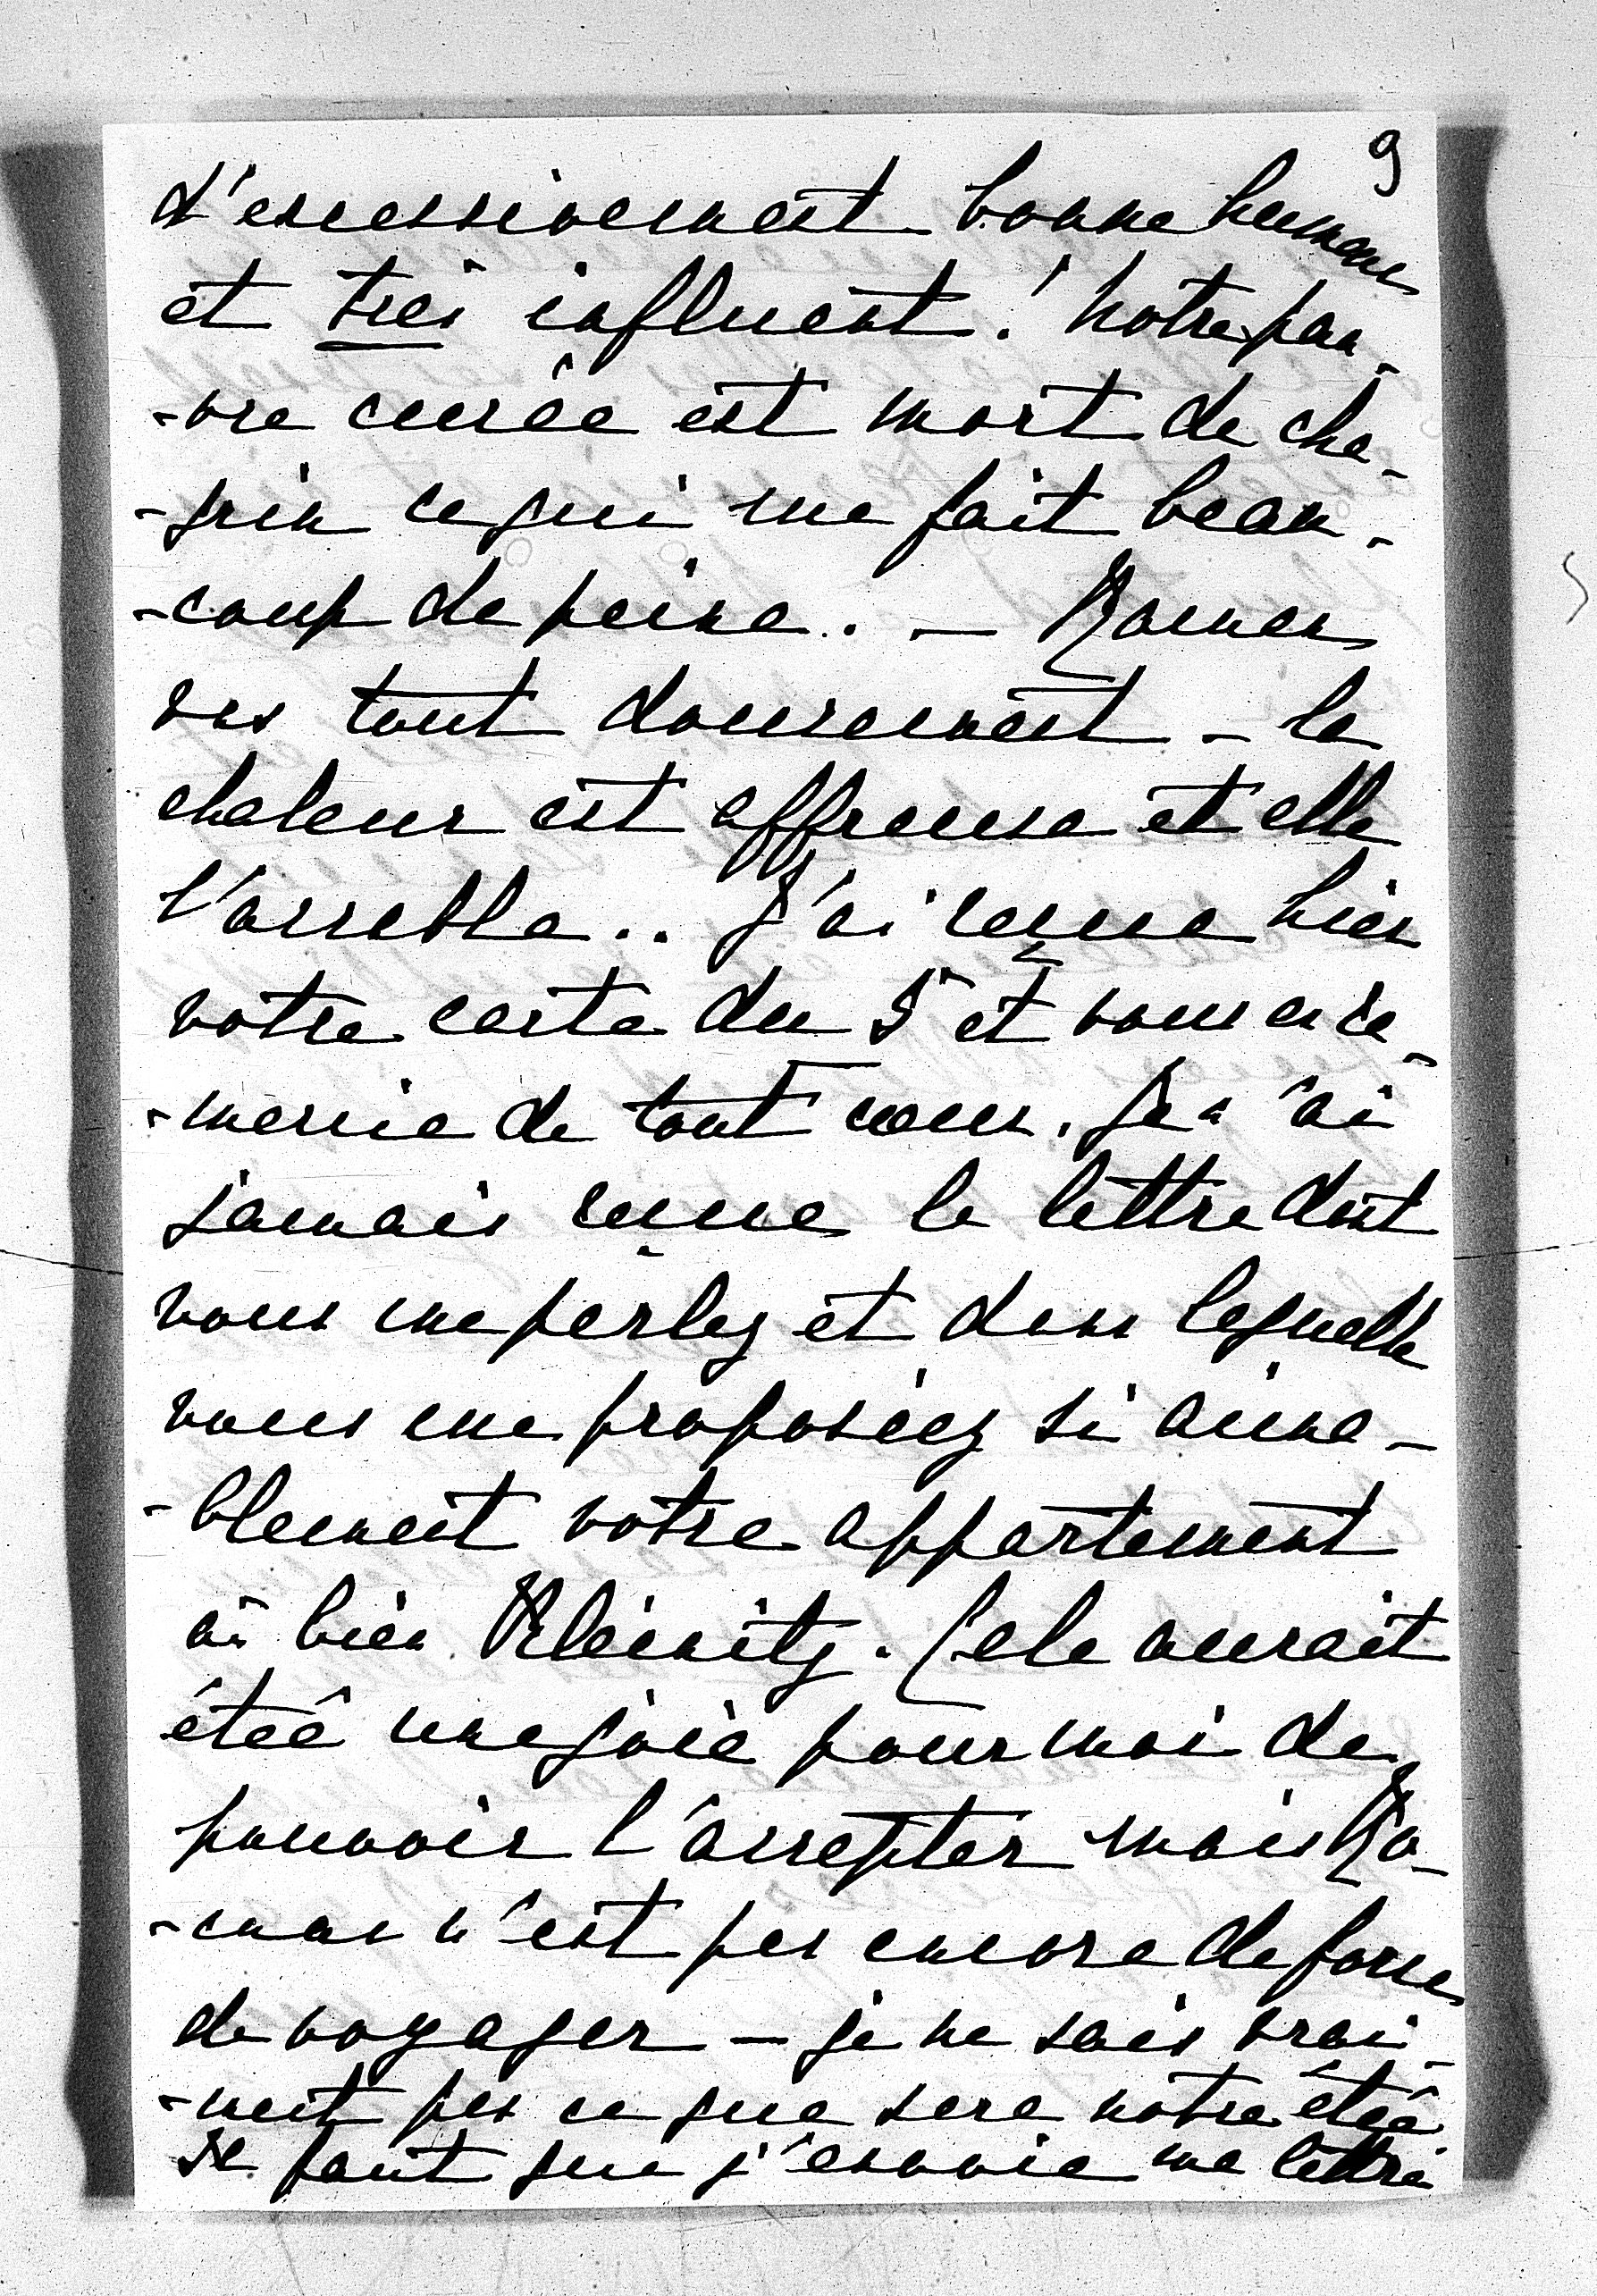 9
d'excessivement bonne humeur
et très influent! Notre pau-
-vre curée est mort de cha-
-grin ce qui me fait beau-
-coup de peine. — Roman
vas tout doucement - la
chaleur est affreuse et elle
l'accable.. J'ai reçue hier
votre carte du 5 et vous en re-
-mercie de tout cœur. Je n'ai
jamais reçue la lettre dont
vous me parlez et dans laquelle
vous me proposiez si aima-
-blement votre appartement
à bien Kleinitz. Cela aurait
étée une joie pour moi de
pouvoir l'accepter mais Ro-
-man n'est pas encore de force
de voyager — je ne sais vrai-
-ment pas ce que sera notre étée
Il faut que j'envoie ma lettre